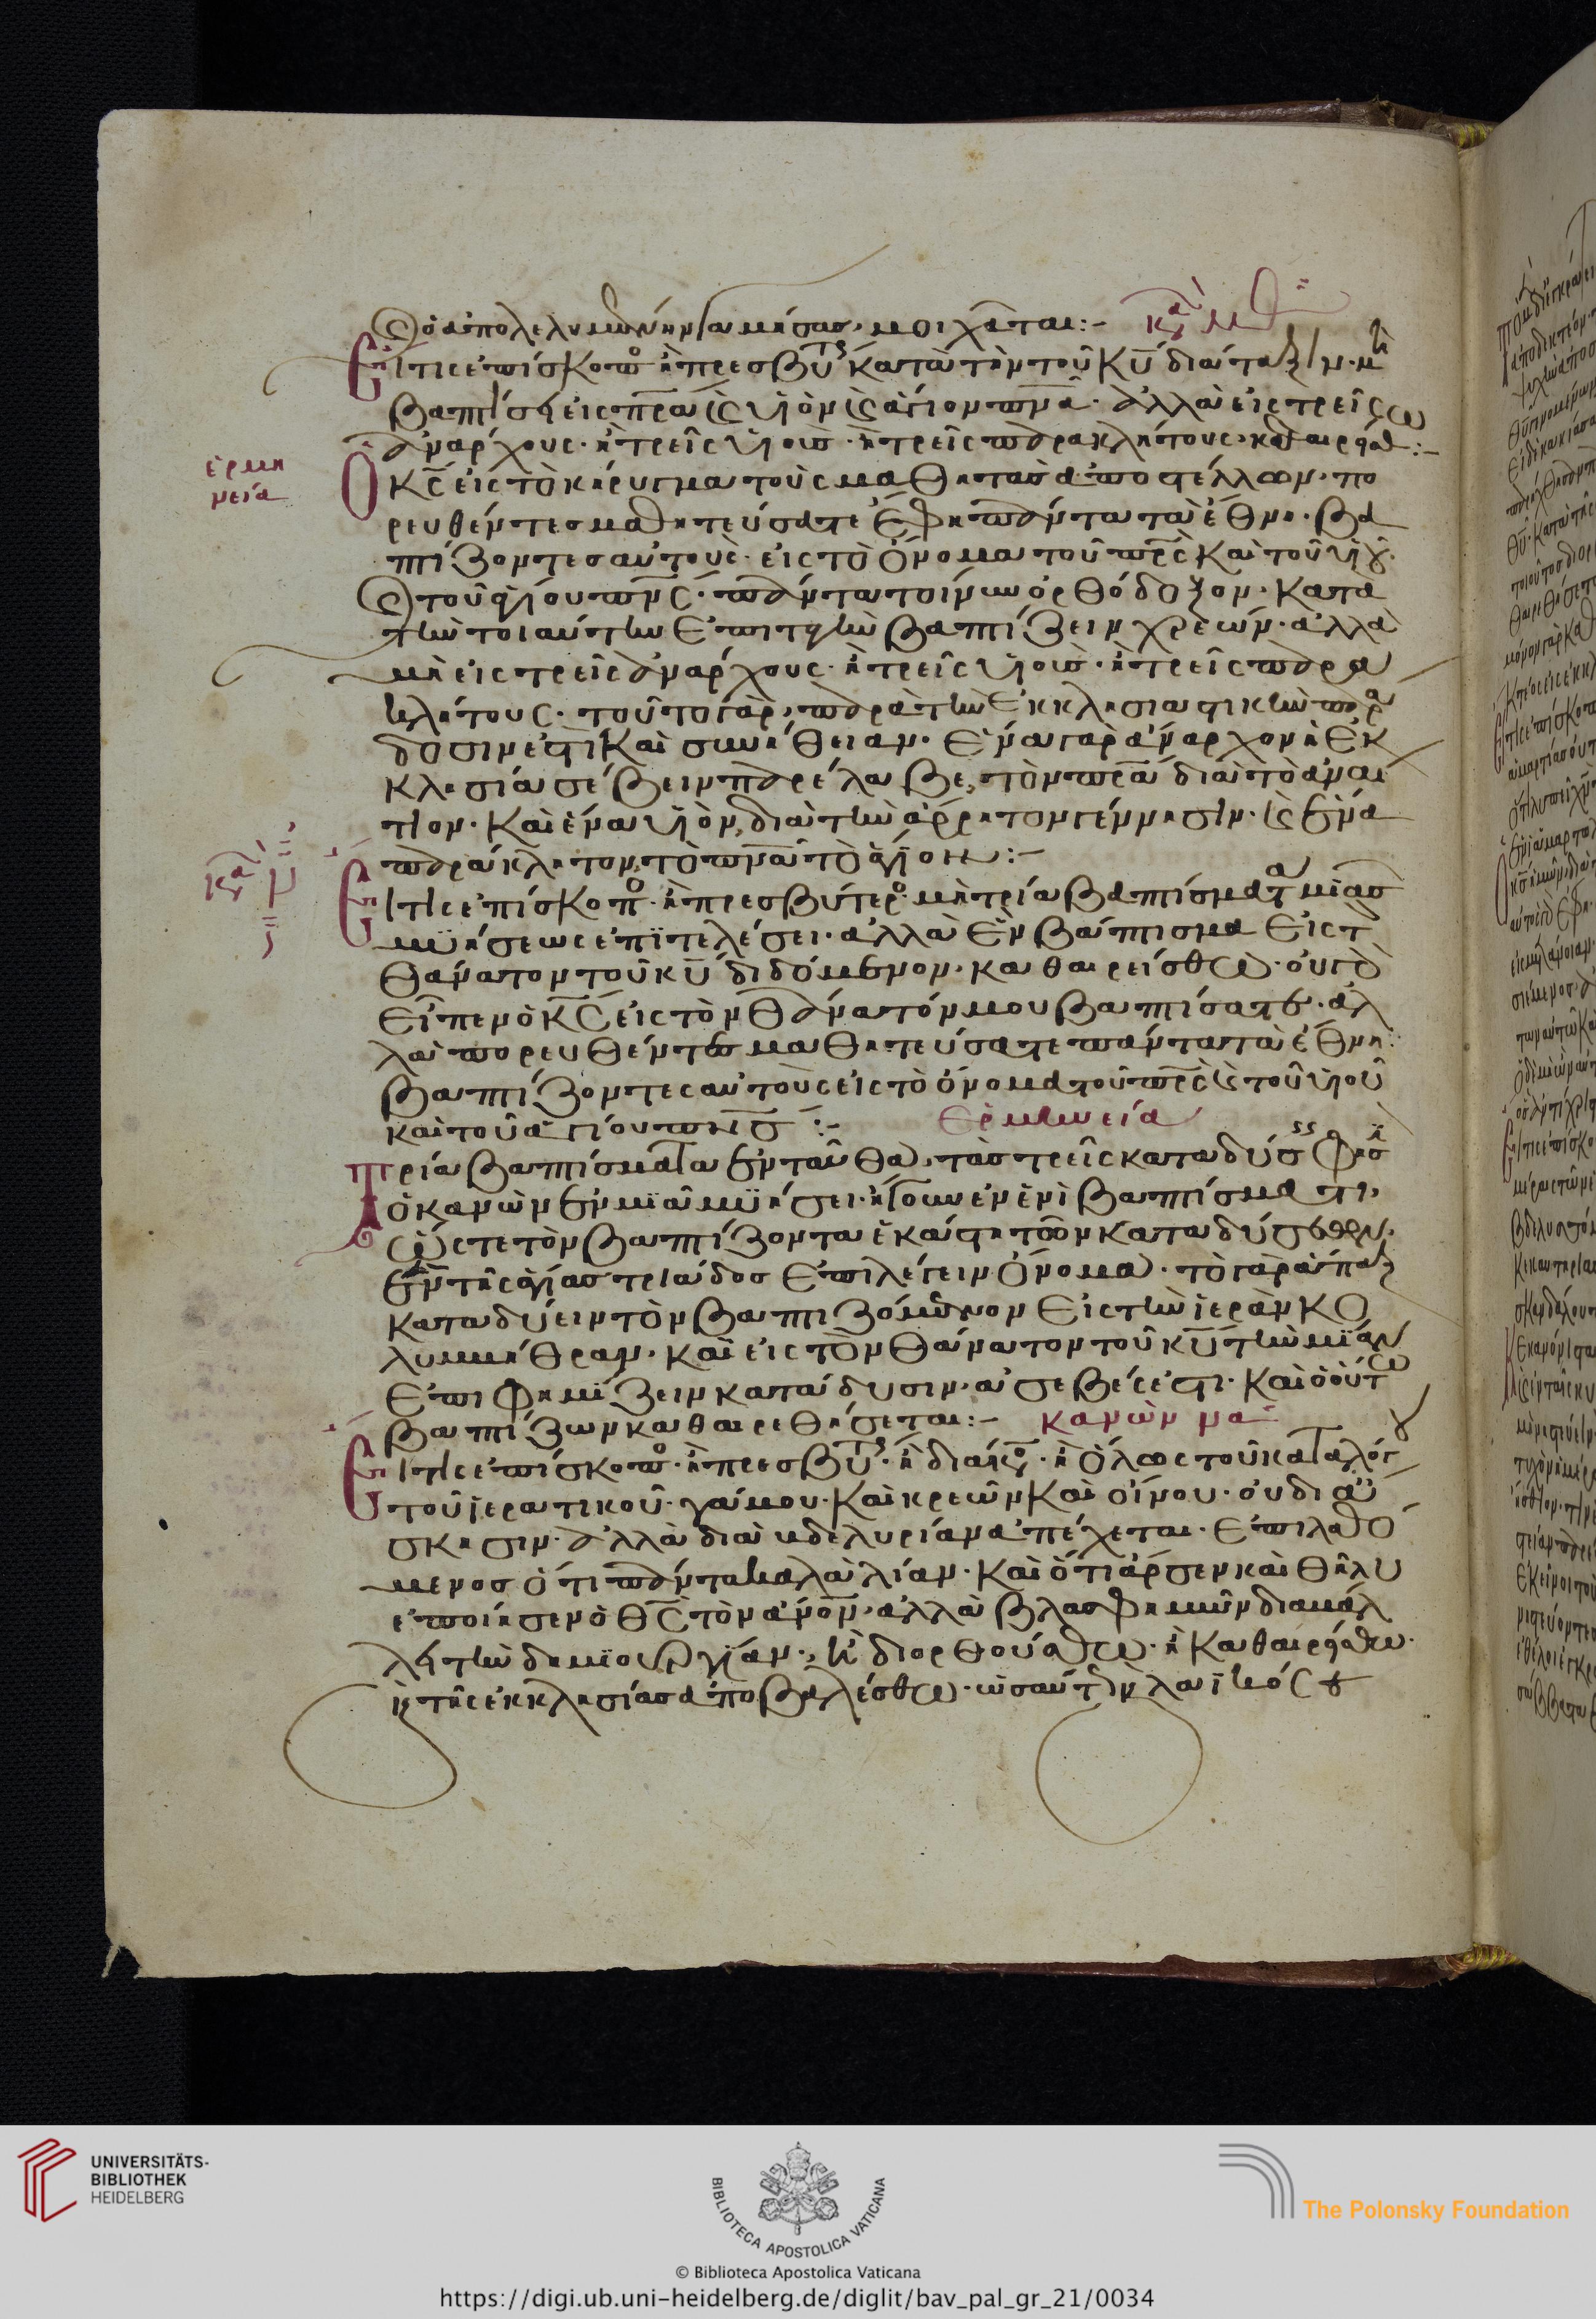 ὁ ἀπολελυμένην γαμήσας, μοιχᾶται:- κα μθ
Εἴ τις ἐπίσκοπο ἢ πρεσβυ κατὰ τὴν τοῦ κυ διάταξιν· μὴ
βαπτίση εἰς πρα καὶ υἱὸν καὶ ἅγιον πνα· ἀλλὰ εἰς τρεῖς
ἀνάρχους· ἢ τρεῖς υἱοὺς· ἢ τρεῖς παρακλήτους, καθαιρείσθω:-
ἑρμη
νεία
Ὁ κς εἰς τὸ κήρυγμα τοὺς μαθητὰς ἀποστέλλων, πο
ρευθέντες μαθητεύσατε ἔφη πάντα τὰ ἔθνη· βα
πτίζοντες αὐτοὺς· εἰς τὸ ὄνομα τοῦ πρς καὶ τοῦ υἱοῦ
καὶ τοῦ ἁγίου πνς· πάντα τοίνυν ὀρθόδοξον· κατὰ
τὴν τοιαύτην ἐπιταγὴν βαπτίζειν χρεών· ἀλλὰ
μὴ εἰς τρεῖς ἀνάρχους· ἢ τρεῖς υἱοὺς· ἢ τρεῖς παρα
κλήτους· τοῦτο γὰρ, παρὰ τὴν ἐκκλησιαστικὴν παρά
δοσιν ἐστὶ καὶ συνήθειαν· ἕνα γὰρ ἄναρχον ἡ ἐκ
κλησία σέβειν παρέλαβε, τὸν πρα διὰ τὸ ἀναί
τιον· καὶ ἕνα υἱὸν, διὰ τὴν ἄρρητον γέννησιν· καὶ ἕνα
παράκλητον, τὸ πνα τὸ ἅγιον:-
κα ν
Εἴ τις ἐπίσκοπο· ἢ πρεσβύτερο· μὴ τρία βαπτίσματα μιᾶς
μυήσεως ἐπιτελέσει· ἀλλὰ ἓν βάπτισμα εἰς τ
θάνατον τοῦ κυ διδόμενον· καθαιρείσθω· οὐ γὰ
εἶπεν ὁ κς εἰς τὸν θάνατόν μου βαπτίσατε· ἀλ
λὰ πορευθέντες μαθητεύσατε πάντα τὰ ἔθνη·
βαπτίζοντες αὐτοὺς εἰς τὸ ὄνομα τοῦ πρς καὶ τοῦ υἱοῦ
καὶ τοῦ ἁγίου πνς:- ἑρμηνεία
Τρία βαπτίσματα ἐνταῦθα, τὰς τρεῖς καταδύσεις φησὶ
ὁ κανὼν ἐν μιᾷ μυήσει· ἤγουν ἐν ἑνὶ βαπτίσματι,
ὥστε τὸν βαπτίζοντα ἑκάστη τῶν καταδύσεων·
ἓν τῆς ἁγίας τριάδος ἐπιλέγειν ὄνομα· τὸ γὰρ ἅπαξ
καταδύειν τὸν βαπτιζόμενον εἰς τὴν ἱερὰν κο
λυμπήθραν· καὶ εἰς τὸν θάνατον τοῦ κυ τὴν μίαν
ἐπιφημίζειν κατάδυσιν, ἀσεβές ἐστι· καὶ ὁ οὕτω
βαπτίζων καθαιρεθήσεται:- κανὼν να
Εἴ τις ἐπίσκοπο· ἢ πρεσβυ· ἢ διάκο· ἢ ὅλως τοῦ καταλόγ
τοῦ ἱερατικοῦ· γάμου· καὶ κρεῶν καὶ οἴνου· οὐ δι ἄ
σκησιν· ἀλλὰ διὰ βδελυρίαν ἀπέχεται· ἐπιλαθό
μενος ὅτι πάντα καλὰ λίαν· καὶ ὅτι ἄρσεν καὶ θῆλυ
ἐποίησεν ὁ θς τὸν ἄνον, ἀλλὰ βλασφημῶν διαβάλ
λη τὴν δημιουργίαν, ἢ διορθούσθω· ἢ καθαιρείσθω·
καὶ τῆς ἐκκλησίας ἀποβαλέσθω· ὡσαύτως λαϊκός
UNIVERSITÄTS-
BIBLIOTHEK
HEIDELBERG
BIBLIOTECA APOSTOLICA VATICANA
The Polonsky Foundation
© Biblioteca Apostolica Vaticana
https://digi.ub.uni-heidelberg.de/diglit/bav_pal_gr_21/0034